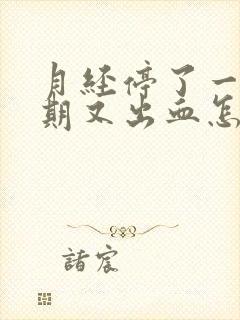 月经停了一
期又出血怎
諸宸